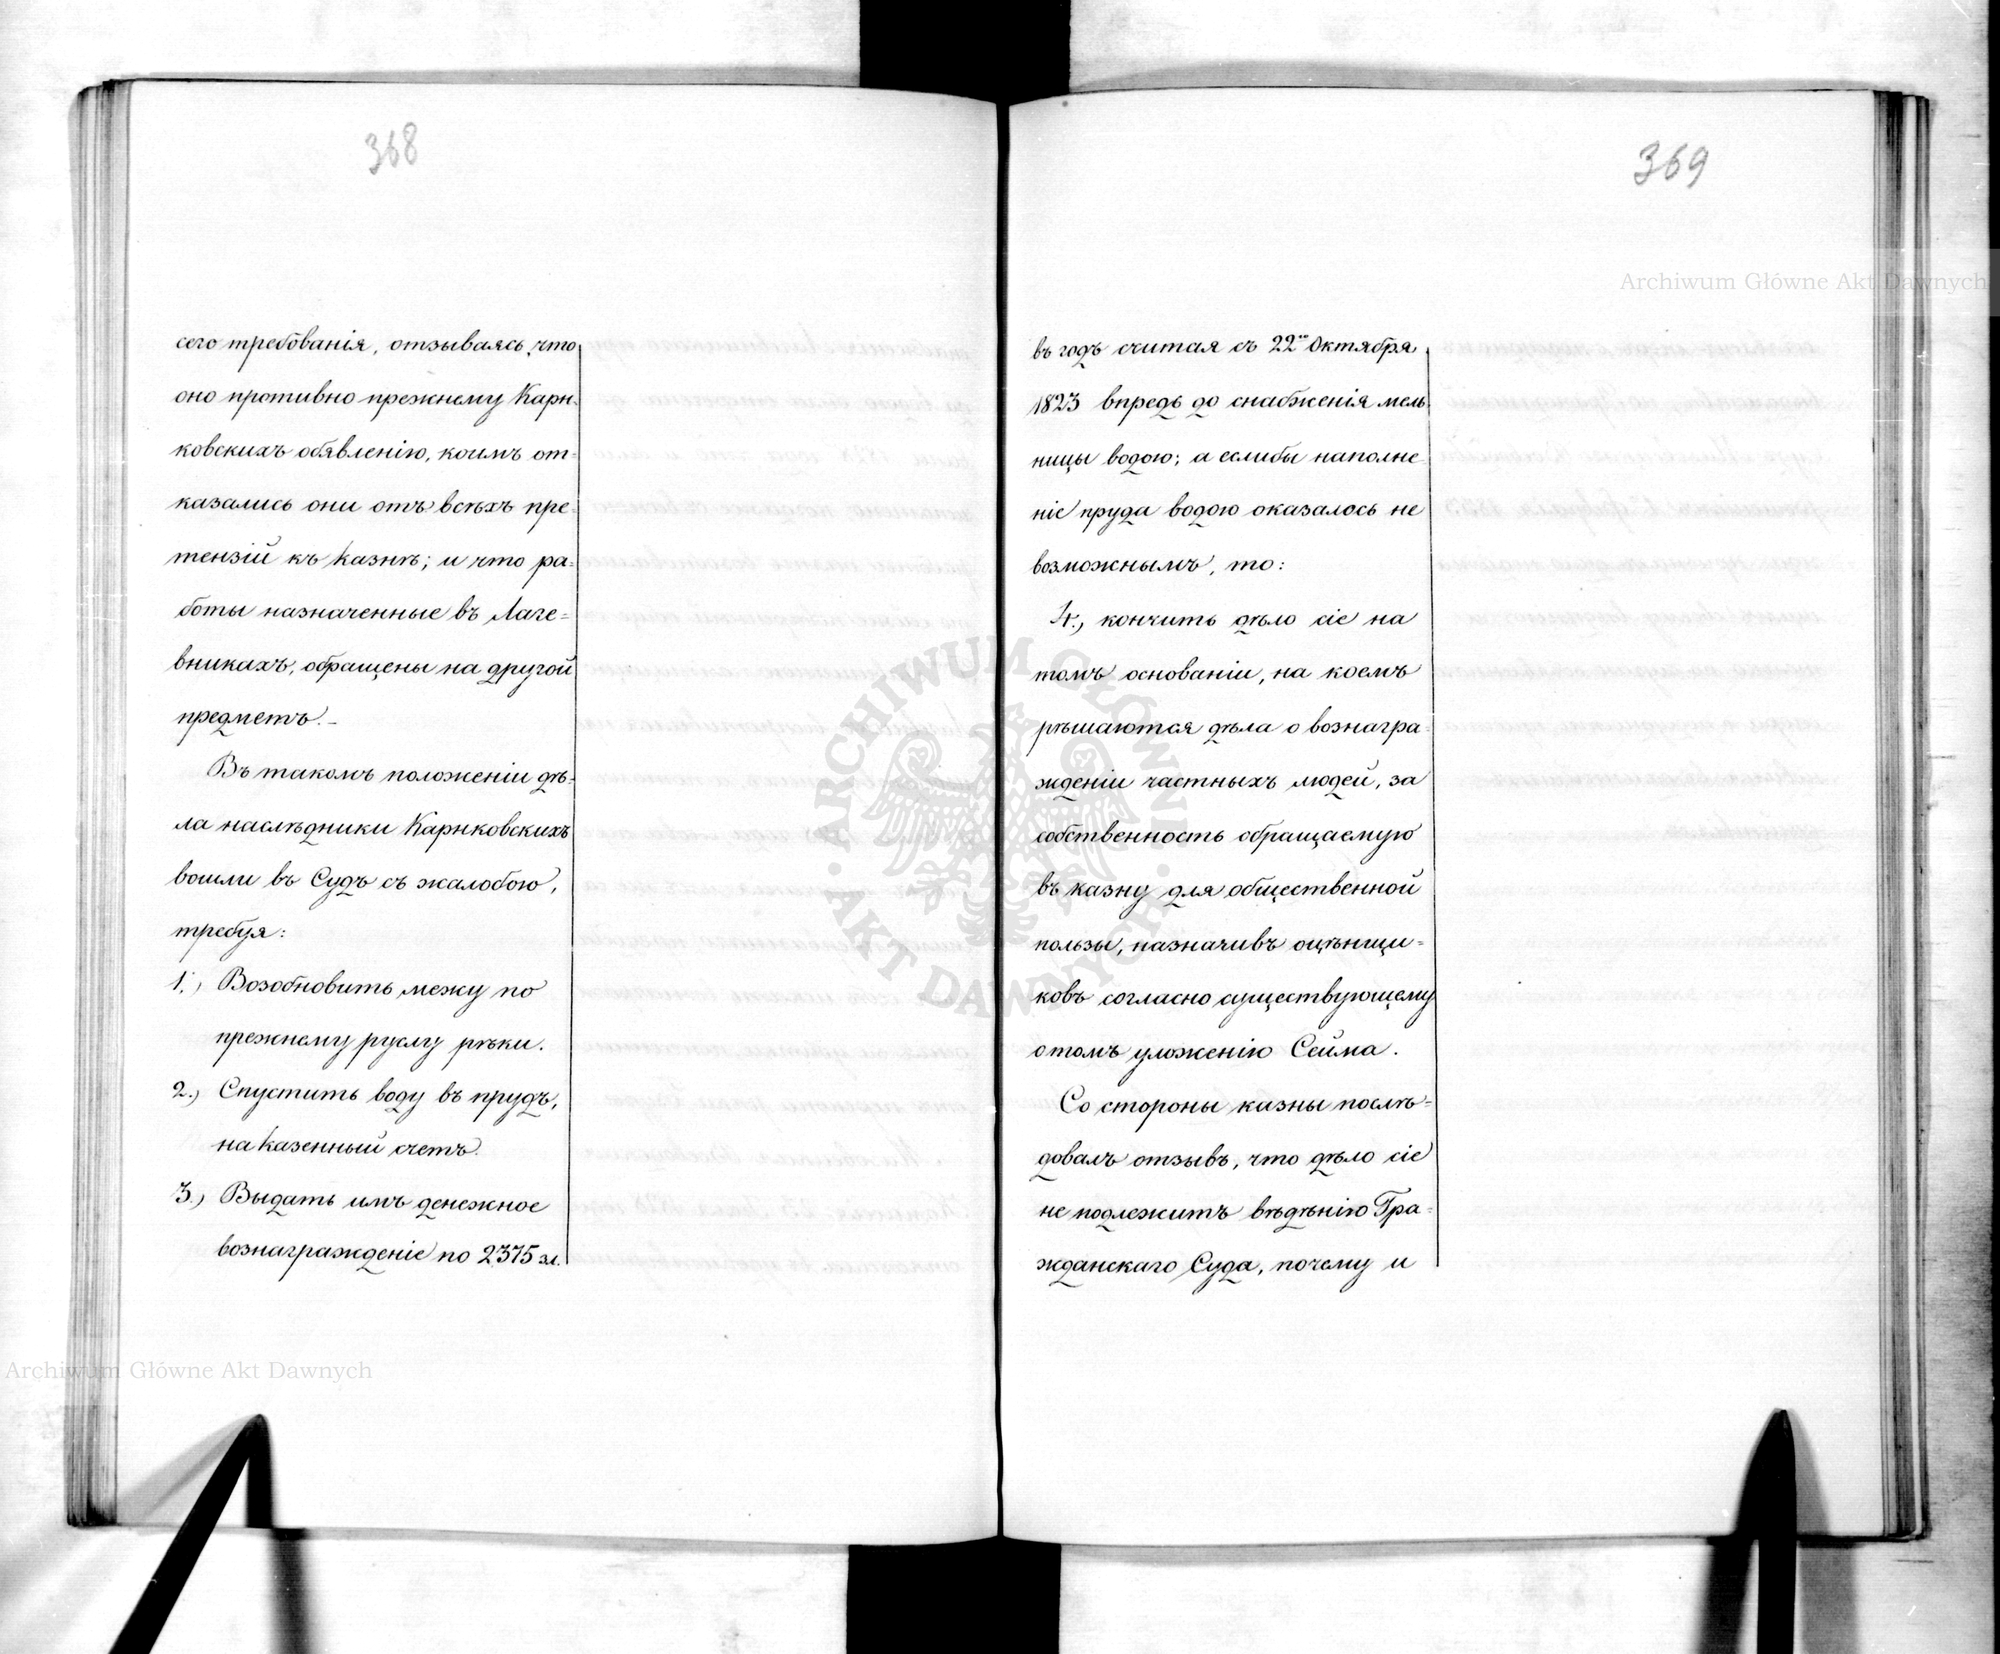 368
сего требованія, отзываясь, что
оно противно прежнему Карн-
ковскихъ объявленію, коимъ от-
казались они отъ всѣхъ пре-
тензій къ Казнѣ; и что ра-
боты назначенные въ Лаге-
вникахъ, обращены на другой
предметъ.-
Въ такомъ положеніи дѣ-
ла наслѣдники Карнковскихъ
вошли въ Судъ съ жалобою,
требуя:
1.) Возобновить межу по
прежнему руслу рѣки.
2.) Спустить воду въ прудъ,
на Казенный счетъ.
3.) Выдать имъ денежное
вознагражденіе по 2375 зл.
369
въ годъ считая съ 22го Октября
1823 впредь до снабженія мель-
ницы водою; а еслибы наполне-
ніе пруда водою оказалось не
возможнымъ, то:
4., кончить дѣло сіе на
томъ основаніи, на коемъ
рѣшаются дѣла о вознагра-
жденіи частныхъ людей, за
собственность обращаемую
въ казну для общественной
пользы, назначивъ оцѣнщи-
ковъ согласно существующему
о томъ уложенію Сейма.
Со стороны казны послѣ-
довалъ отзывъ, что дѣло сіе
не подлежитъ вѣдѣнію Гра-
жданскаго Суда, почему и
Archiwum Główne Akt Dawnych
Archiwum Główne Akt Dawnych
ARCHIWUM GŁÓWNE AKT DAWNYCH